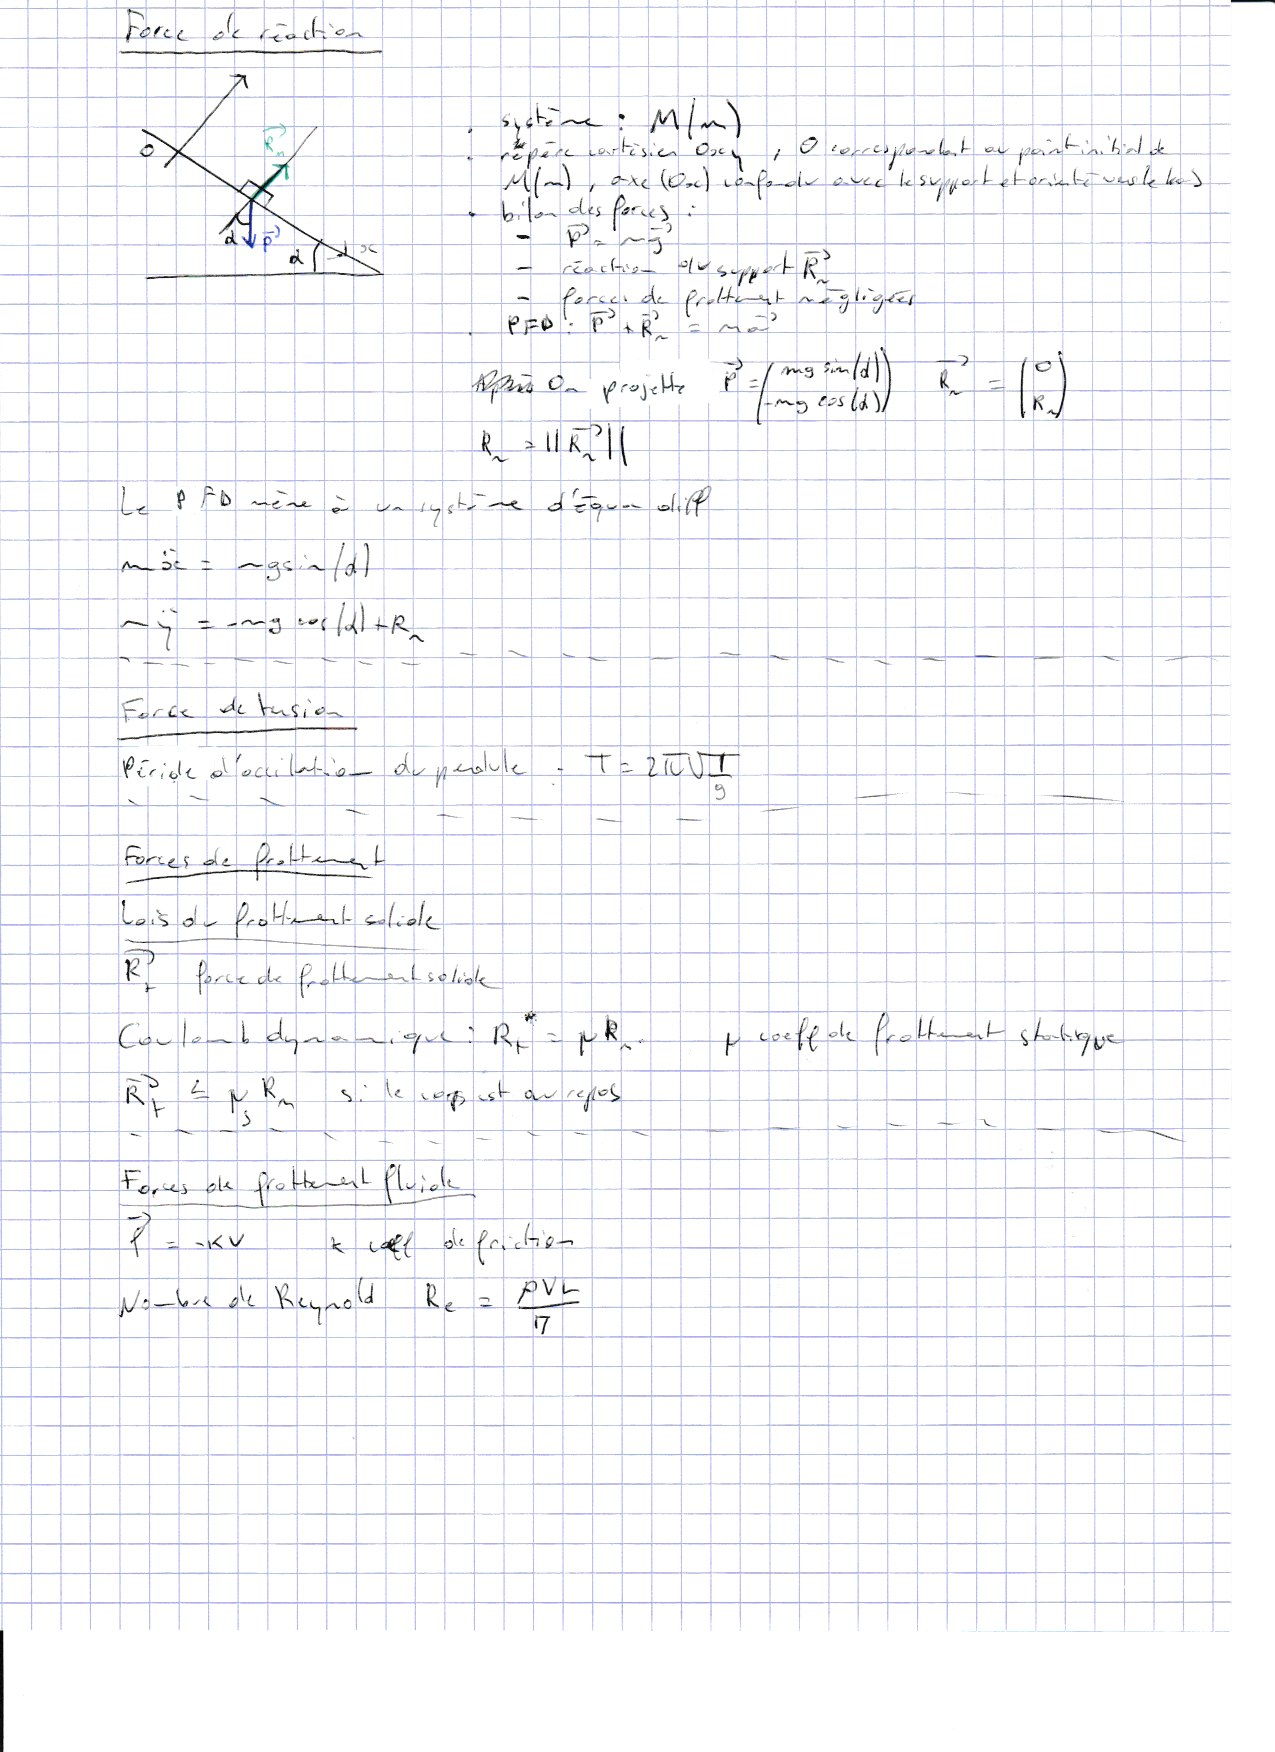 Force de réaction
O
R⃗n
α
P⃗
α
x
. système : M(m)
. repère cartésien Oxy, O correspondant au point initial de
M(m), axe (Ox) confondu avec le support et orienté vers le bas
. bilan des forces :
- P⃗ = mg⃗
- réaction du support R⃗n
- forces de frottement négligées
. PFD : P⃗ + R⃗n = ma⃗
On projette P⃗ = (mg sin(α) / -mg cos(α)) R⃗n = (0 / Rn)
Rn = ||R⃗n||
Le PFD mène à un système d'équa diff
mẍ = mgsin(α)
mÿ = -mg cos(α) + Rn
Force de tension
Période d'occilation du pendule : T = 2π√(l/g)
Forces de frottement
Lois du frottement solide
R⃗t force de frottement solide
Coulomb dynamique : Rt = μRn. μ coeff de frottement statique
R⃗t ≤ μs Rn si le corps est au repos
Forces de frottement fluide
f⃗ = -kv k coeff de friction
Nombre de Reynold Re = ρVL/η